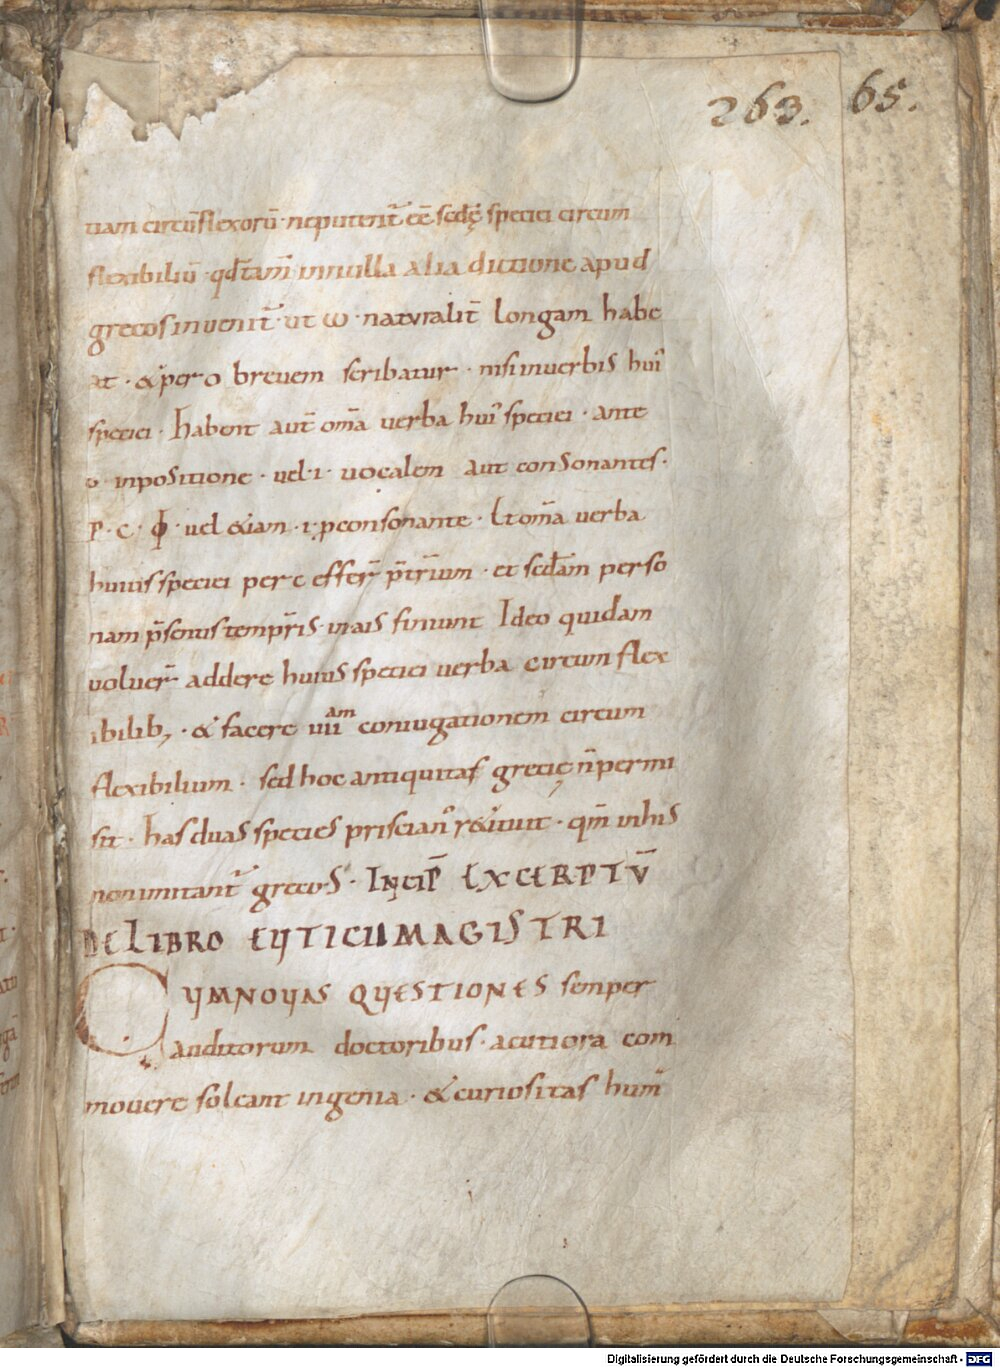 263. 65.
tiam circūflexorū · neputent̄ eē sedē speciei circum
flexibiliū · qd̄ tam̄ innulla alia dictione apud
grecos inuenit̄ · ut ω · naturalit̄ longam habe
at · & per o breuem scribatur · nisi inuerbis hui᾿
speciei · habent aut̄ om̄a uerba hui᾿ speciei · ante
ω inpositione · uel · i · uocalem aut consonantes ·
P · C · Φ · uel &iam · i · p consonante · Et om̄a uerba
huius speciei per c effer̄ p̄t̄rium · et sec̄dam perso
nam p̄sentis temp̄ris · in ais finiunt Ideo quidam
uoluer̄ addere huius speciei uerba circumflex
ibilib; · & facere uiiᵃᵐ coniugationem circum
flexibilium · sed hoc antiquitas greciȩ n̄ permi
sit · has duas species priscian᾿ r&icuit · qm̄ inhis
non imitant̄ grecos · INCIP̄ EXCERPTŪ
DE LIBRO EYTICII MAGISTRI
CYMNOYAS QYESTIONES semper
auditorum doctoribus · acutiora com
mouere soleant ingenia · & curiositas hum̄
Digitalisierung gefördert durch die Deutsche Forschungsgemeinschaft - DFG